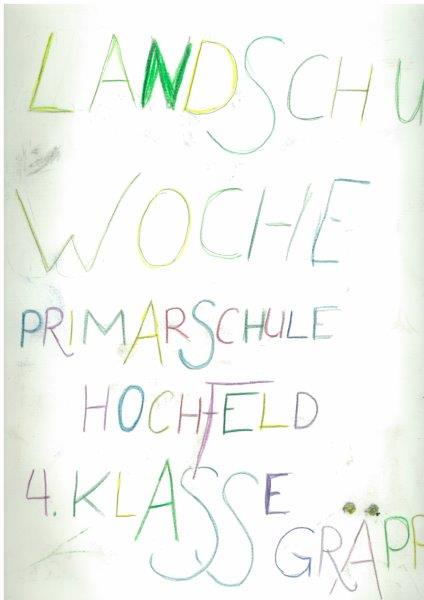 LANDSCHU
WOCHE
PRIMARSCHULE
HOCHFELD
4. KLASSE
GRÄPP